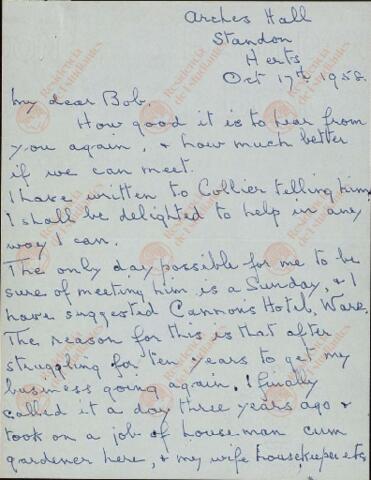 Arches Hall
Standon
Herts
Oct 17th 1958.
My dear Bob.
How good it is to hear from
you again, & how much better
if we can meet.
I have written to Collier telling him
I shall be delighted to help in any
way I can.
The only day possible for me to be
sure of meeting him is a Sunday, & I
have suggested Cannons Hotel, Ware.
The reason for this is that after
struggling for ten years to get my
business going again. I finally
called it a day three years ago &
took on a job of houseman cum
gardener here, & my wife housekeeper etc
Residencia de Estudiantes